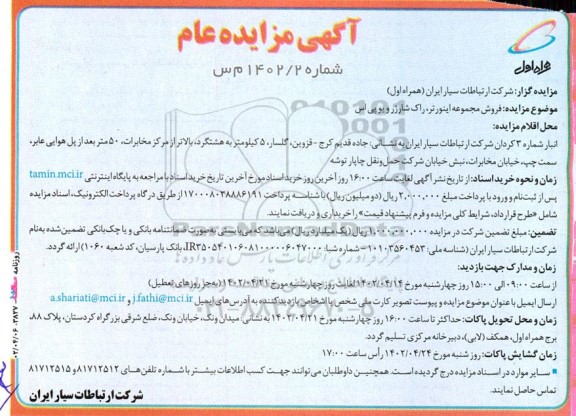 آگهی مزایده عام
شماره ۱۴۰۲/۲ م س
همراه اول
مزایده گزار: شرکت ارتباطات سیار ایران (همراه اول)
موضوع مزایده: فروش مجموعه اینورتر، راک شارژر و یو پی اس
محل اقلام مزایده:
انبار شماره ۳ کردان شرکت ارتباطات سیار ایران به نشانی: جاده قدیم کرج - قزوین، گلسار، ۵ کیلومتر به هشتگرد، بالاتر از مرکز مخابرات، ۵۰ متر بعد از پل هوایی عابر،
سمت چپ، خیابان مخابرات، نبش خیابان شرکت حمل‌ونقل چاپار توشه
زمان و نحوه خرید اسناد: از تاریخ نشر آگهی لغایت ساعت ۱۶:۰۰ روز آخرین روز خرید اسناد مورخ آخرین تاریخ خرید اسناد با مراجعه به پایگاه اینترنتی tamin.mci.ir
پس از ثبت‌نام و ورود با پرداخت مبلغ ۲,۰۰۰,۰۰۰ ریال (دو میلیون ریال) با شناسه پرداخت ۱۷۰۰۰۸۰۳۸۸۸۶۱۹۱ از طریق درگاه پرداخت الکترونیک، اسناد مزایده
شامل «طرح قرارداد، شرایط کلی مزایده و فرم پیشنهاد قیمت» را خریداری و دریافت نمایند.
تضمین: مبلغ تضمین شرکت در مزایده ۱,۰۰۰,۰۰۰,۰۰۰ ریال (یک میلیارد ریال) می‌باشد که می‌بایستی به‌صورت ضمانتنامه بانکی و یا چک بانکی تضمین شده به‌نام
شرکت ارتباطات سیار ایران (شناسه ملی: ۱۰۱۰۳۵۶۰۴۵۳ - شماره شبا: IR۳۵۰۵۴۰۱۰۶۰۸۱۰۰۰۰۰۶۰۴۷۰۰۰ بانک پارسیان، کد شعبه ۱۰۶۰) ارائه گردد.
زمان و مدارک جهت بازدید:
از ساعت ۰۹:۰۰ الی ۱۵:۰۰ روز چهارشنبه مورخ ۱۴۰۲/۰۴/۱۴ لغایت روز چهارشنبه مورخ ۱۴۰۲/۰۴/۲۱ (به‌جز روزهای تعطیل)
ارسال ایمیل با عنوان موضوع مزایده و پیوست تصویر کارت ملی شخص یا اشخاص بازدیدکننده به آدرس‌های ایمیل j.fathi@mci.ir و a.shariati@mci.ir
زمان و محل تحویل پاکات: حداکثر تا ساعت ۱۶:۰۰ روز چهارشنبه مورخ ۱۴۰۲/۰۴/۲۱ به نشانی: میدان ونک، خیابان ونک، ضلع شرقی بزرگراه کردستان، پلاک ۸۸،
برج همراه اول، همکف (لابی)، دبیرخانه مرکزی تسلیم گردد.
زمان گشایش پاکات: روز شنبه مورخ ۱۴۰۲/۰۴/۲۴ رأس ساعت ۱۷:۰۰
■ سایر موارد در اسناد مزایده درج گردیده است. همچنین داوطلبان می‌توانند جهت کسب اطلاعات بیشتر با شماره تلفن‌های ۸۱۷۱۲۵۱۲ و ۸۱۷۱۲۵۱۵
تماس حاصل نمایند.
شرکت ارتباطات سیار ایران